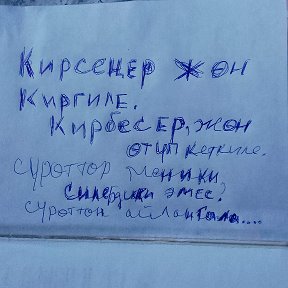 Кирсеңер жөн
Киргиле.
Кирбес ер, жөн
өтүп кеткиле.
Сүрөттөр меники
Силердики эмес?
Сүрөттөн айлангала....